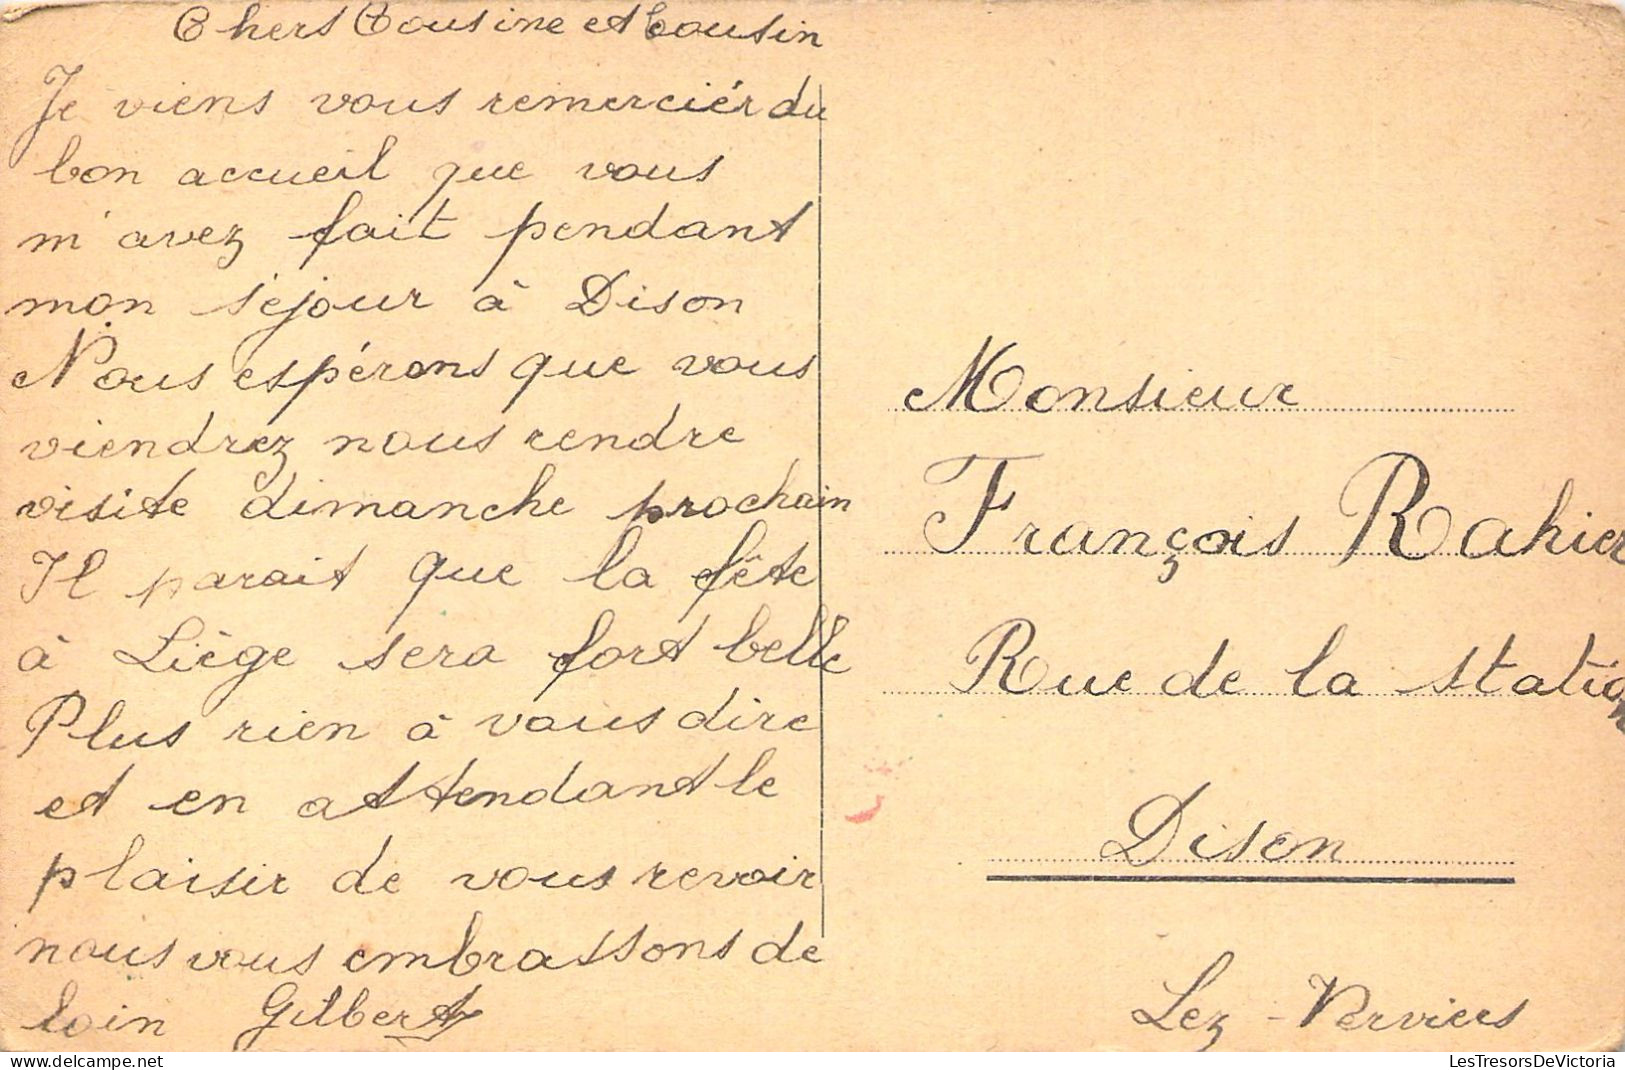 Chers Cousine et Cousin
Je viens vous remerciér du
bon accueil que vous
m'avez fait pendant
mon séjour à Dison
Nous espérons que vous
viendrez nous rendre
visite dimanche prochain
Il parait que la fête
à Liège sera fort belle
Plus rien à vous dire
et en attendant le
plaisir de vous revoir
nous vous embrassons de
loin Gilbert
Monsieur
François Rahier
Rue de la Station
Dison
Lez-Verviers
LesTresorsDeVictoria